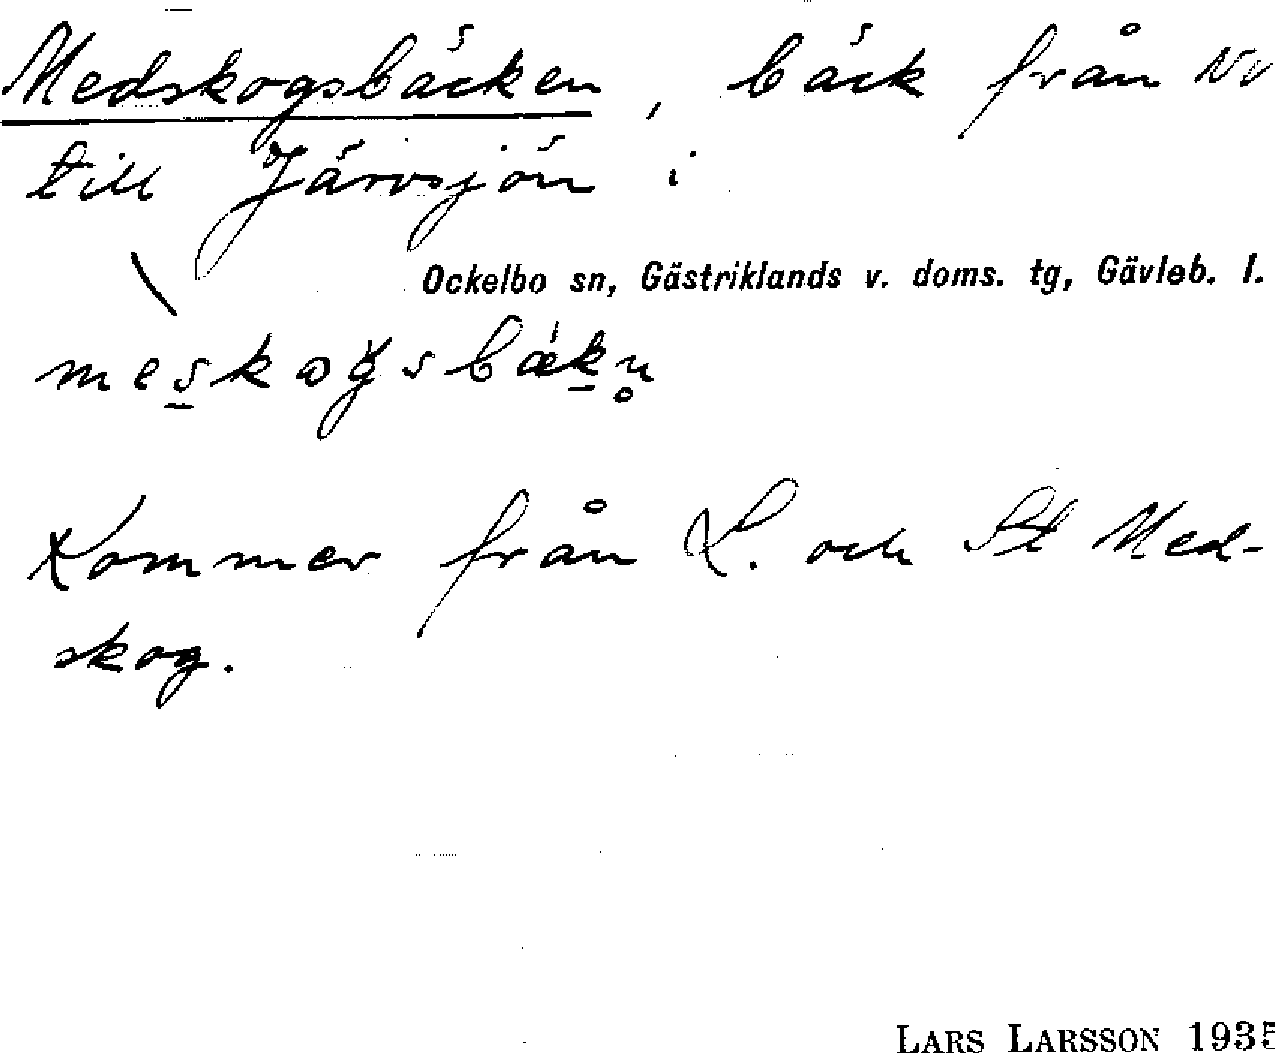 Medskogsbäcken, bäck från NV
till Järvsjön i
Ockelbo sn, Gästriklands v. doms. tg, Gävleb. l.
Kommer från L. och St Med-
skog.
LARS LARSSON 1935